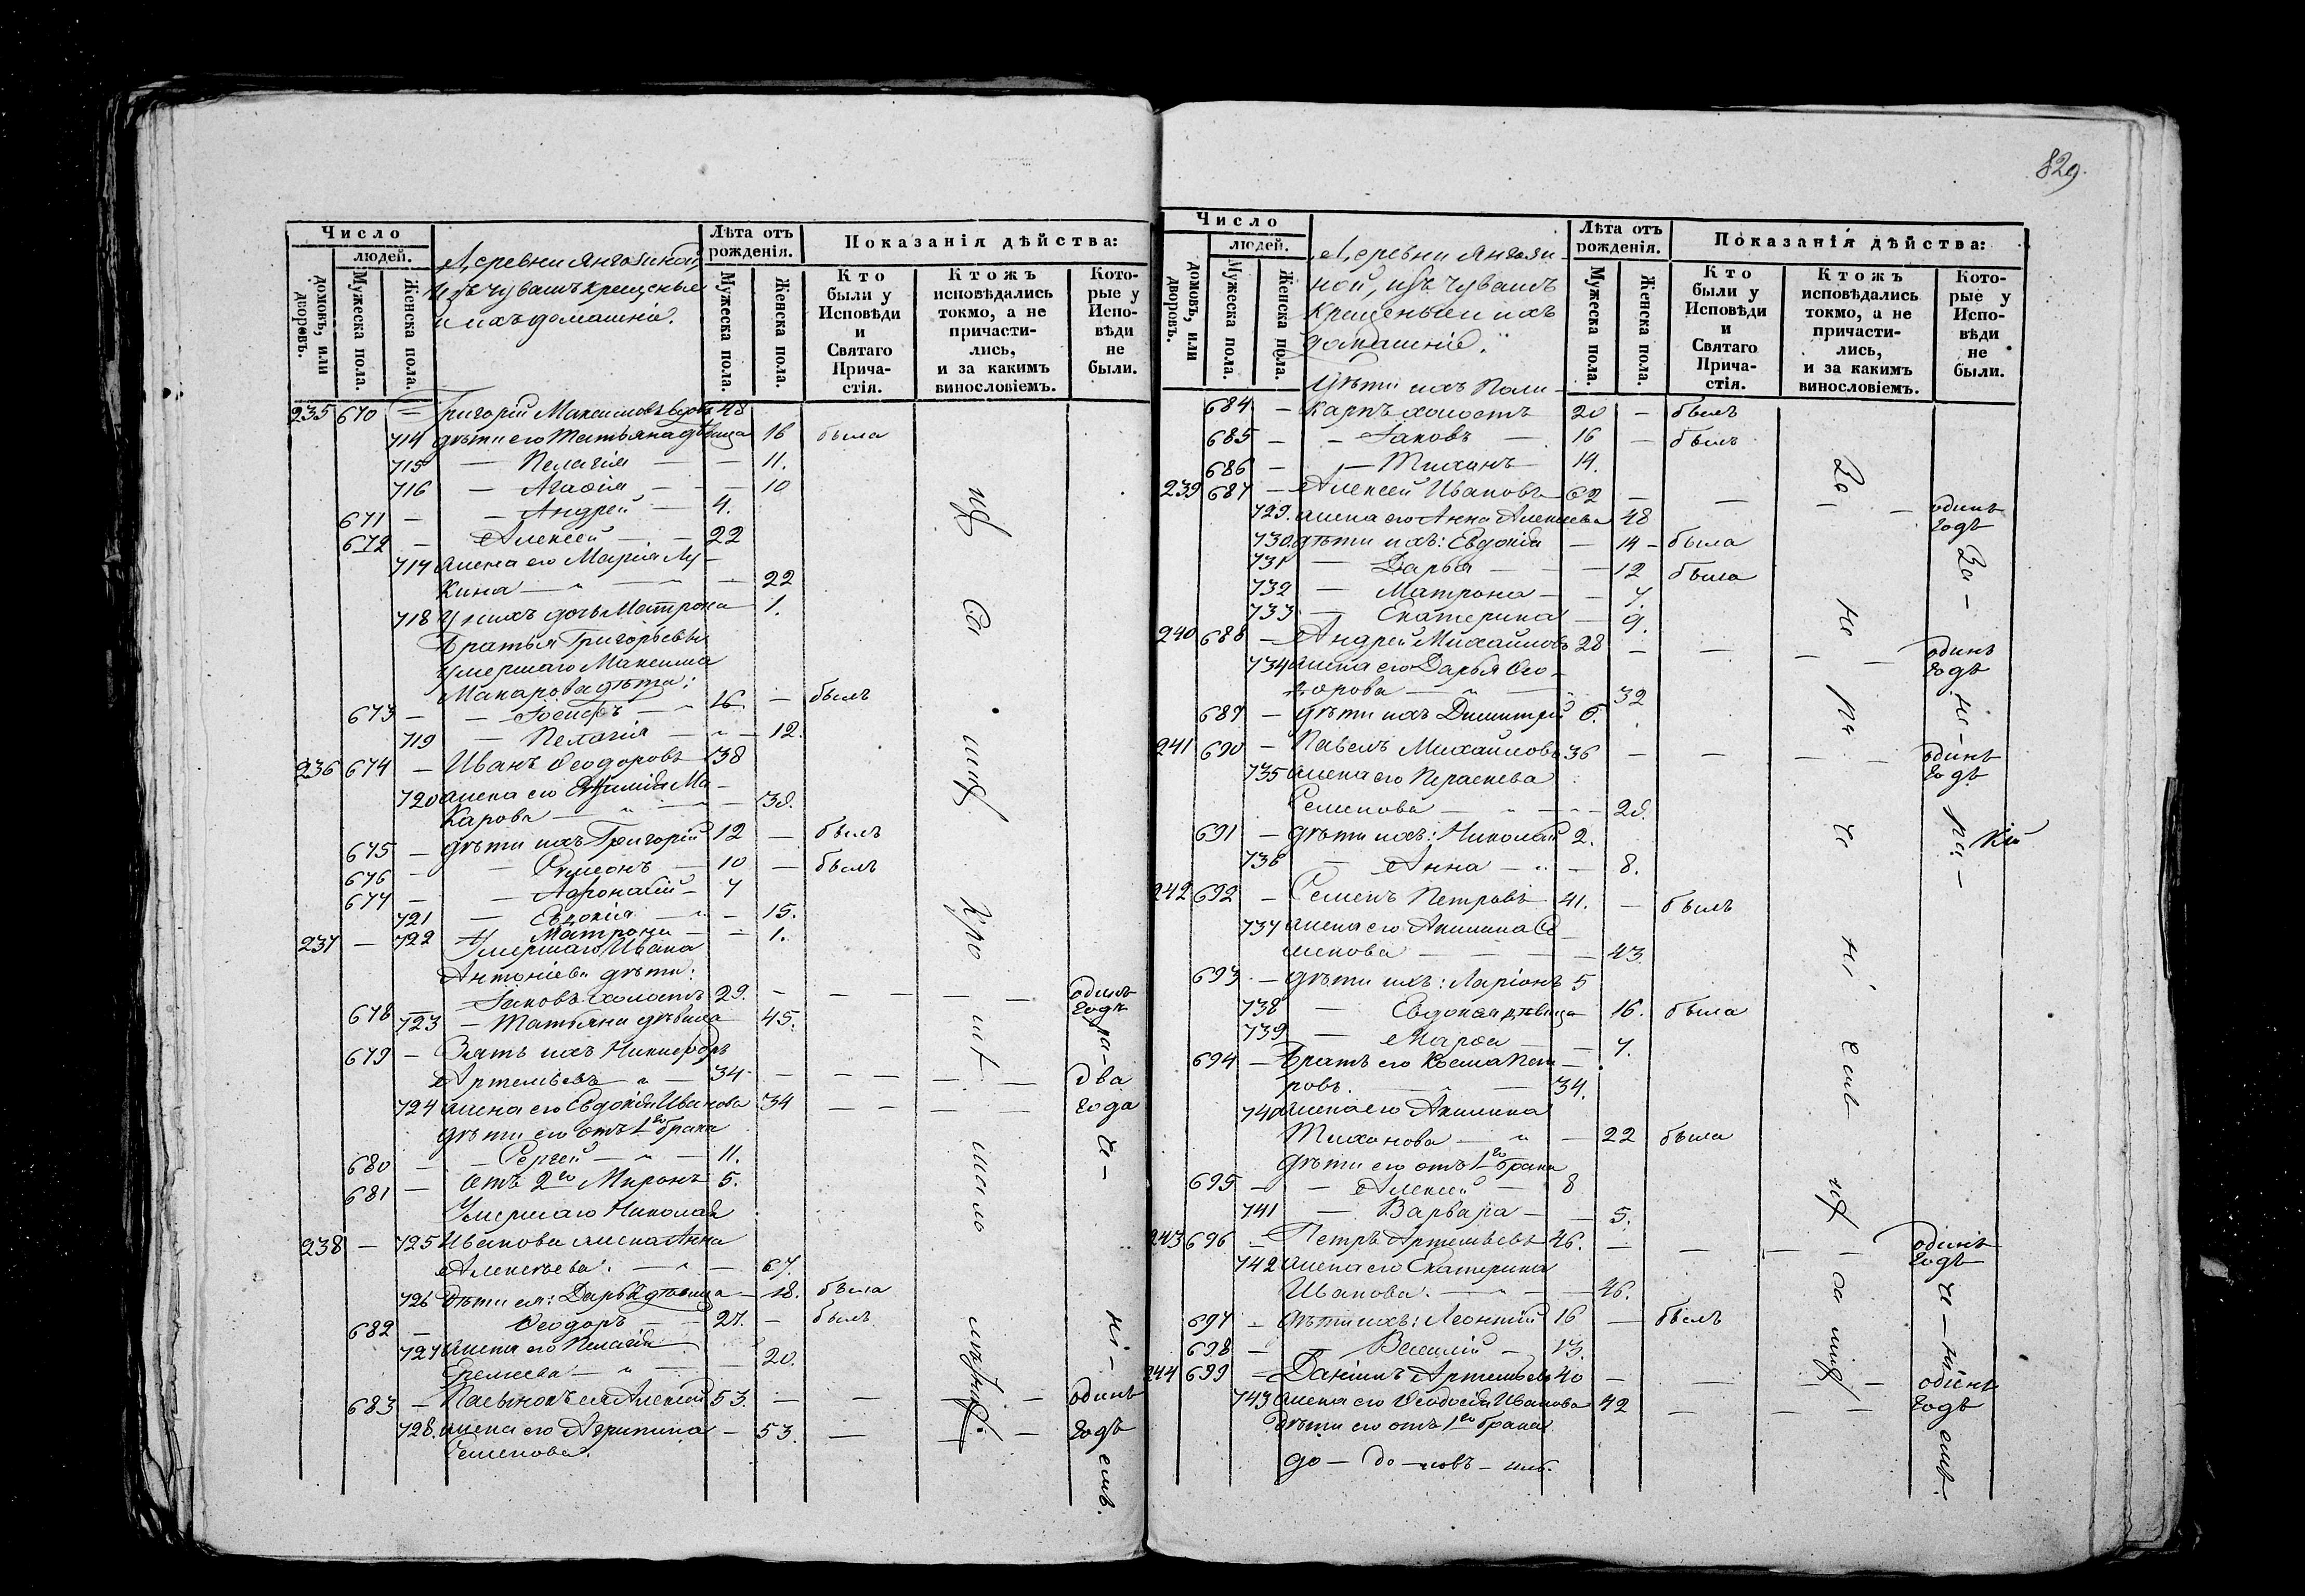 829.
Число
людей.
домовъ, или дворовъ.
Мужеска пола.
Женска пола.
Деревни Янгоз
Изъ чувашъ крещеные
и ихъ домашніе.
Лѣта отъ рожденія.
Мужеска пола.
Женска пола.
Показанія дѣйства:
Кто были у Исповѣди и Святаго Прича-стія.
Ктожъ исповѣдались токмо, а не причасти-лись, и за какимъ винословіемъ.
Кото-рые у Испо-вѣди не были.
235 670 — Григорій Максимовъ вдовъ 48
714 дѣти его Татьяна дѣвица 16 была
715 — Пелагія — — 11.
716 — Агаѳія — — 10
671 — — Андрей — 4.
672 — Алексей — — 22
717 жена его Марія Лу-
кина — — 22
718 У нихъ дочь Матрона 1.
Братья Григорьевы
умершаго Максима
Макарова дѣти:
673 — — Іосифъ — 16 — былъ
719 — Пелагія — — 12.
236 674 — Иванъ Ѳеодоровъ 38
720 жена его Ма-
карова — — 38.
675 — дѣти ихъ Григорій 12 — былъ
676 — — Симеонъ — 10 — былъ
677 — — 7
721 — Евдокія — — 15.
237 — 722 — Матрона — — 1.
Умершаго Ивана
Антоніева дѣти:
678 — Іаковъ холостъ 29. — — — — — одинъ годъ
723 — Татьяна дѣвица 45.
679 — Зять ихъ Никифоръ
Артемьевъ — 34 — — — — — два
724 жена его Евдокія Иванова 34 — — — — года
дѣти его отъ 1го брака
680 — — Сергей — — 11.
681 — отъ 2го Миронъ 5.
Умершаго Николая
238 — 725 Иванова жена Анна
Алексеева. — — 67.
726 Дѣти ея: Дарья дѣвица — 18. была
682 — Ѳеодоръ — 27. — былъ
727 жена его Пелагія
Еремеева — — 20.
683 — Пасынокъ ея Алексей 53. — — — — одинъ
728. жена его Агрипина — 53. — — — годъ
Семенова.
Число
людей.
домовъ, или дворовъ.
Мужеска пола.
Женска пола.
Деревни
ной, изъ чувашъ
крещеные и ихъ
домашніе.
Лѣта отъ рожденія.
Мужеска пола.
Женска пола.
Показанія дѣйства:
Кто были у Исповѣди и Святаго Прича-стія.
Ктожъ исповѣдались токмо, а не причасти-лись, и за какимъ винословіемъ.
Кото-рые у Испо-вѣди не были.
Дѣти ихъ Поли-
684 — карпъ холостъ 20 — былъ
685 — — Іаковъ — 16 — былъ
686 — — Тихонъ — 14.
239 687 — Алексей Ивановъ 62 — — — — одинъ годъ
729. жена его Анна Алексеева 48
730. дѣти ихъ: Евдокія — 14 — была
731 — Дарья — — 12 была
732 — Матрона — — 7.
733 — Екатерина — 9.
240 688 — Андрей Михайловъ 28 — — — — одинъ годъ
734 жена его Дарья Ѳео-
дорова — — 32
689 — дѣти ихъ Димитрій 6.
241 690 — Павелъ Михайловъ 36 — — — — одинъ годъ
735 жена его Параскева
Семенова — — — 28.
691 — дѣти ихъ: Николай 2.
736 — Анна — — 8.
242 692 — Семенъ Петровъ 41. — былъ
737 жена его Акилина Се-
менова — — — 43.
693 — дѣти ихъ: Ларіонъ 5
738 — Евдокия дѣвица 16. была
739 — Марѳа — — 7.
694 — Братъ его Косма Пет-
ровъ. — — 34.
740 жена его Акилина
Тихонова — — 22 была
дѣти его отъ 1го брака
695 — — Алексей — 8
741 — Варвара — — 5.
243 696 — Петръ Артемьевъ 46. — — — — одинъ годъ
742 жена его Екатерина
Иванова. — — 46.
697 — дѣти ихъ: Леонтій 16 — былъ
698 — — Василій — 13.
244 699 — Даніилъ Артемьевъ 40 — — — — одинъ
743 жена его Ѳеодосія Иванова 42 — — — годъ
Дѣти его отъ 1го брака